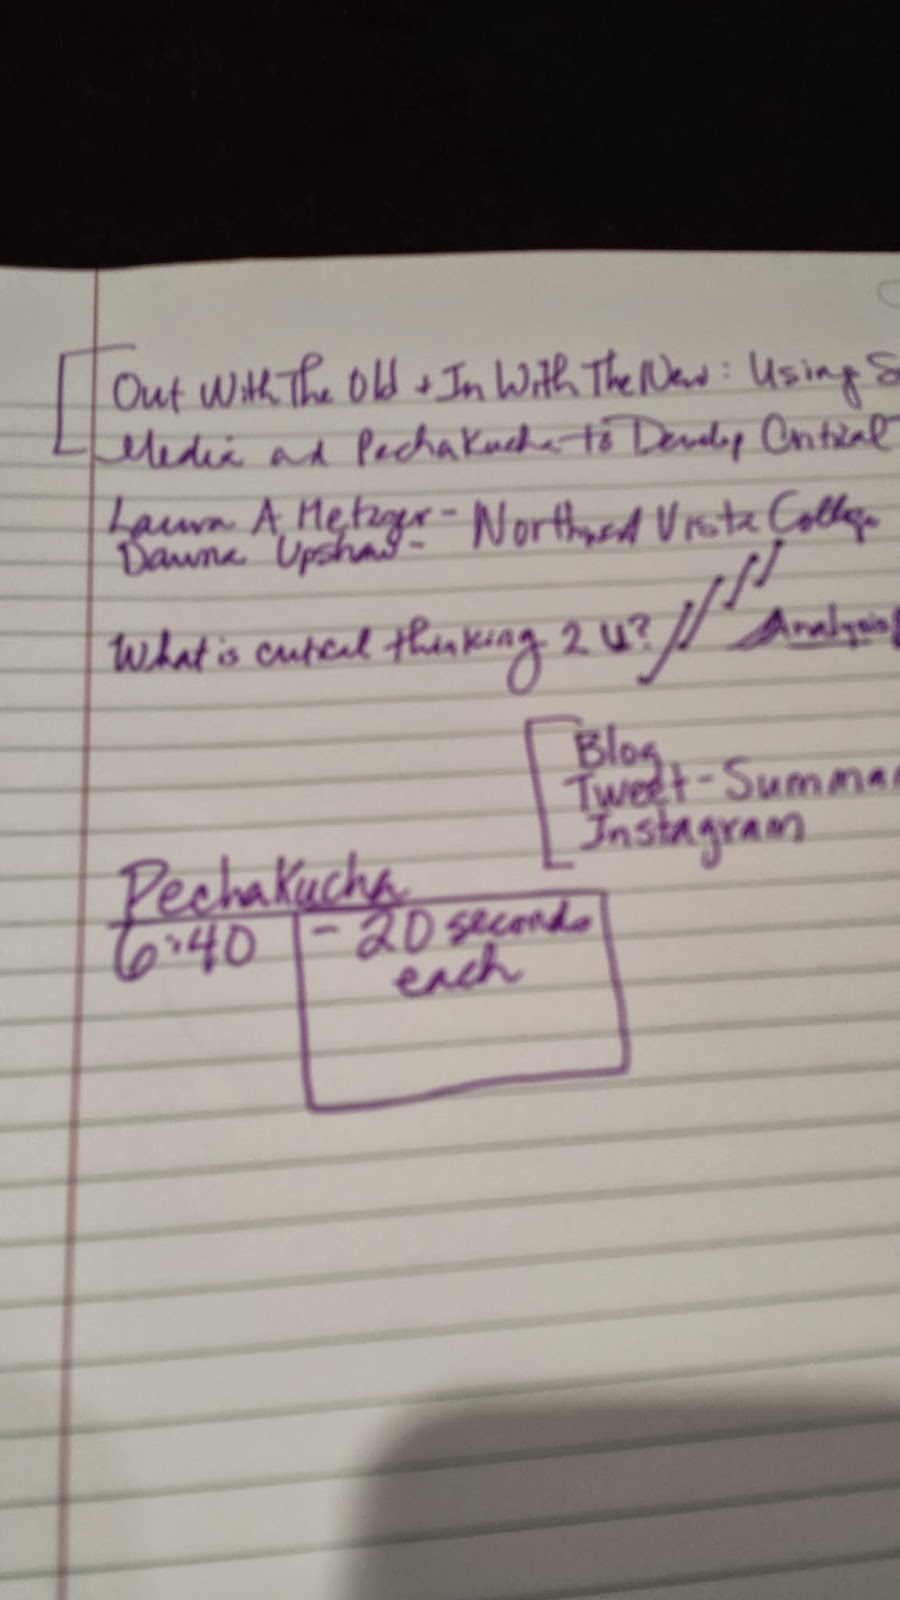 Out With The Old + In With The New: Using S
Media and PechaKucha to Develop Critical
Laura A Metzger - Northwest Vista College
Dawna Upshaw -
What is critical thinking 2 U?
Analysis
Blog
Tweet - Summar
Instagram
PechaKucha
6:40 - 20 seconds
each